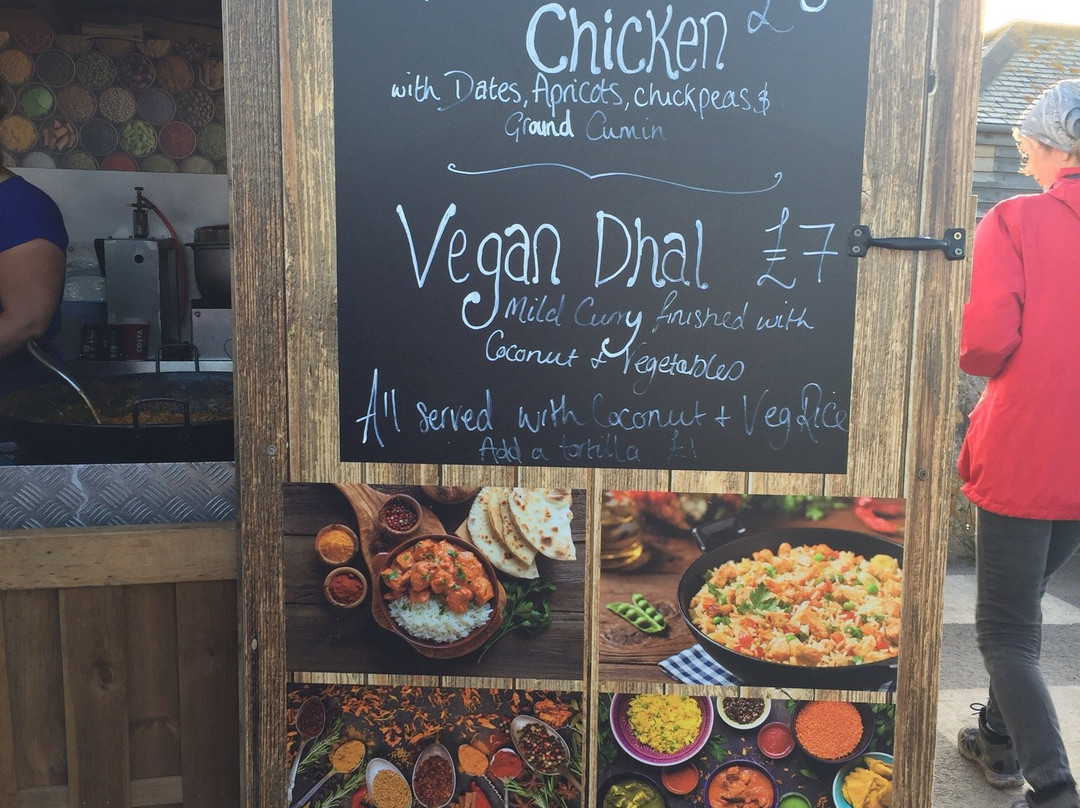 Chicken £
with Dates, Apricots, chickpeas, &
Ground Cumin
Vegan Dhal £7
Mild Curry finished with
Coconut & Vegetables
All served with Coconut + Veg Rice
Add a tortilla £1